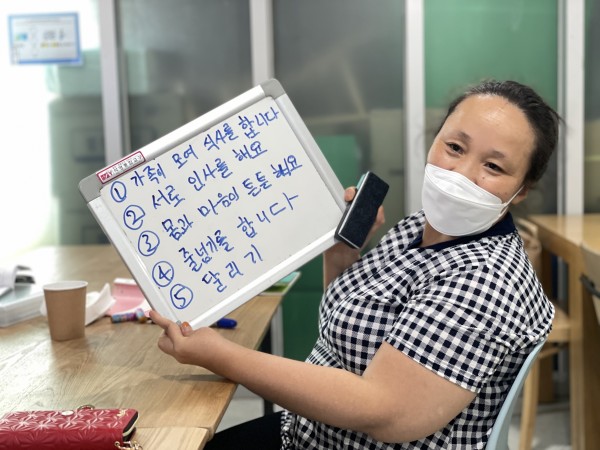 ① 가족이 모여 식사를 합니다
② 서로 인사를 해요
③ 몸과 마음이 튼튼 해요
④ 줄넘기를 합니다
⑤ 달리기